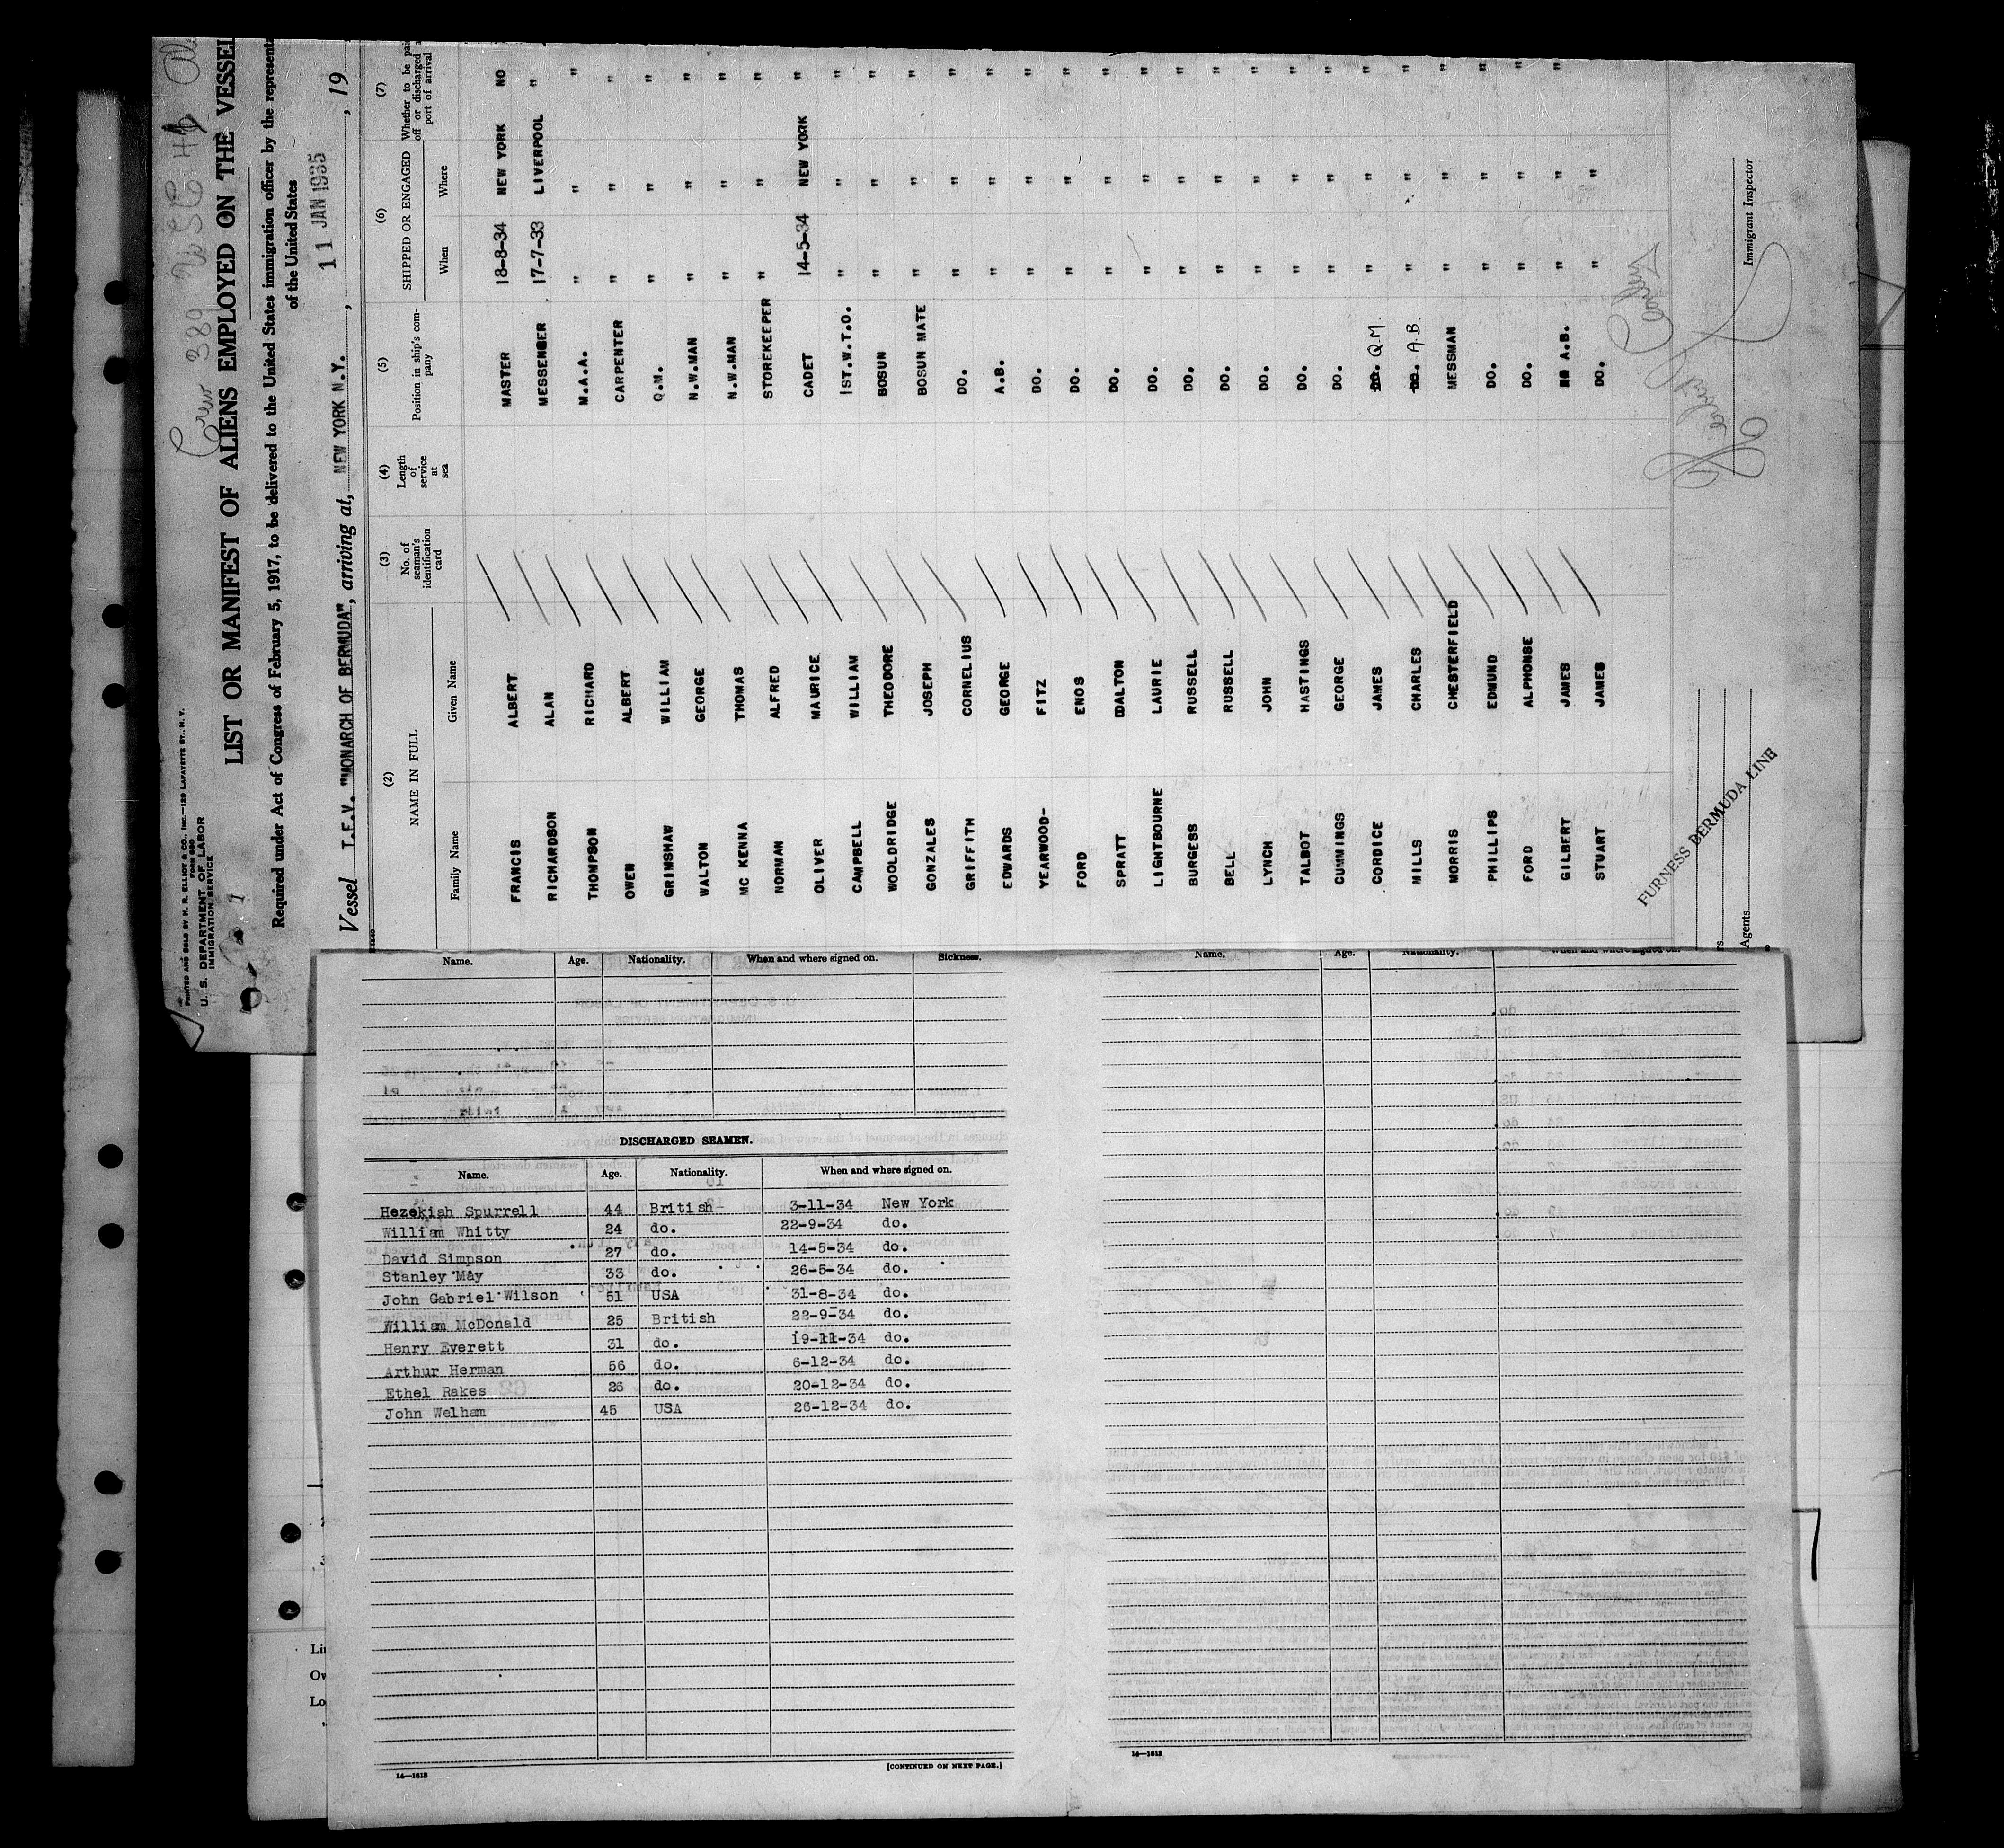 PRINTED AND SOLD BY M. R. ELLIOT & CO., INC.—129 LAFAYETTE ST., N. Y.
FORM 680
U. S. DEPARTMENT OF LABOR
IMMIGRATION SERVICE
Crew 389
LIST OR MANIFEST OF ALIENS EMPLOYED ON THE VESSEL
Required under Act of Congress of February 5, 1917, to be delivered to the United States immigration officer by the represent
of the United States
11 JAN 1935
Vessel T.E.V. "MONARCH OF BERMUDA", arriving at, NEW YORK N.Y. , , 19
(2) (3) (4) (5) (6) (7)
NAME IN FULL No. of seaman's identification card Length of service at sea Position in ship's company SHIPPED OR ENGAGED Whether to be pai off or discharged a port of arrival
Family Name Given Name When Where
FRANCIS ALBERT MASTER 18-8-34 NEW YORK NO
RICHARDSON ALAN MESSENGER 17-7-33 LIVERPOOL "
THOMPSON RICHARD M.A.A. " " "
OWEN ALBERT CARPENTER " " "
GRIMSHAW WILLIAM Q.M. " " "
WALTON GEORGE N.W.MAN " " "
MC KENNA THOMAS N.W.MAN " " "
NORMAN ALFRED STOREKEEPER " " "
OLIVER MAURICE CADET 14-5-34 NEW YORK "
CAMPBELL WILLIAM 1ST.W.T.O. " " "
WOOLDRIDGE THEODORE BOSUN " " "
GONZALES JOSEPH BOSUN MATE " " "
GRIFFITH CORNELIUS DO. " " "
EDWARDS GEORGE A.B. " " "
YEARWOOD- FITZ DO. " " "
FORD ENOS DO. " " "
SPRATT DALTON DO. " " "
LIGHTBOURNE LAURIE DO. " " "
BURGESS RUSSELL DO. " " "
BELL RUSSELL DO. " " "
LYNCH JOHN DO. " " "
TALBOT HASTINGS DO. " " "
CUMMINGS GEORGE DO. " " "
CORDICE JAMES DO. Q.M. " " "
MILLS CHARLES DO. A.B. " " "
MORRIS CHESTERFIELD MESSMAN " " "
PHILLIPS EDMUND DO. " " "
FORD ALPHONSE DO. " " "
GILBERT JAMES A.B. " " "
STUART JAMES DO. " "
FURNESS BERMUDA LINE
Agents
Immigrant Inspector
Name. Age. Nationality. When and where signed on. Sickness.
DISCHARGED SEAMEN.
Name. Age. Nationality. When and where signed on.
Hezekiah Spurrell 44 British 3-11-34 New York
William Whitty 24 do. 22-9-34 do.
David Simpson 27 do. 14-5-34 do.
Stanley May 33 do. 26-5-34 do.
John Gabriel Wilson 51 USA 31-8-34 do.
William McDonald 25 British 22-9-34 do.
Henry Everett 31 do. 19-11-34 do.
Arthur Herman 56 do. 6-12-34 do.
Ethel Rakes do. 20-12-34 do.
John Welham 45 USA 26-12-34 do.
14—1613
[CONTINUED ON NEXT PAGE.]
Name. Age. Nationality. When and where signed on.
14—1613
Li
Ow
Lo